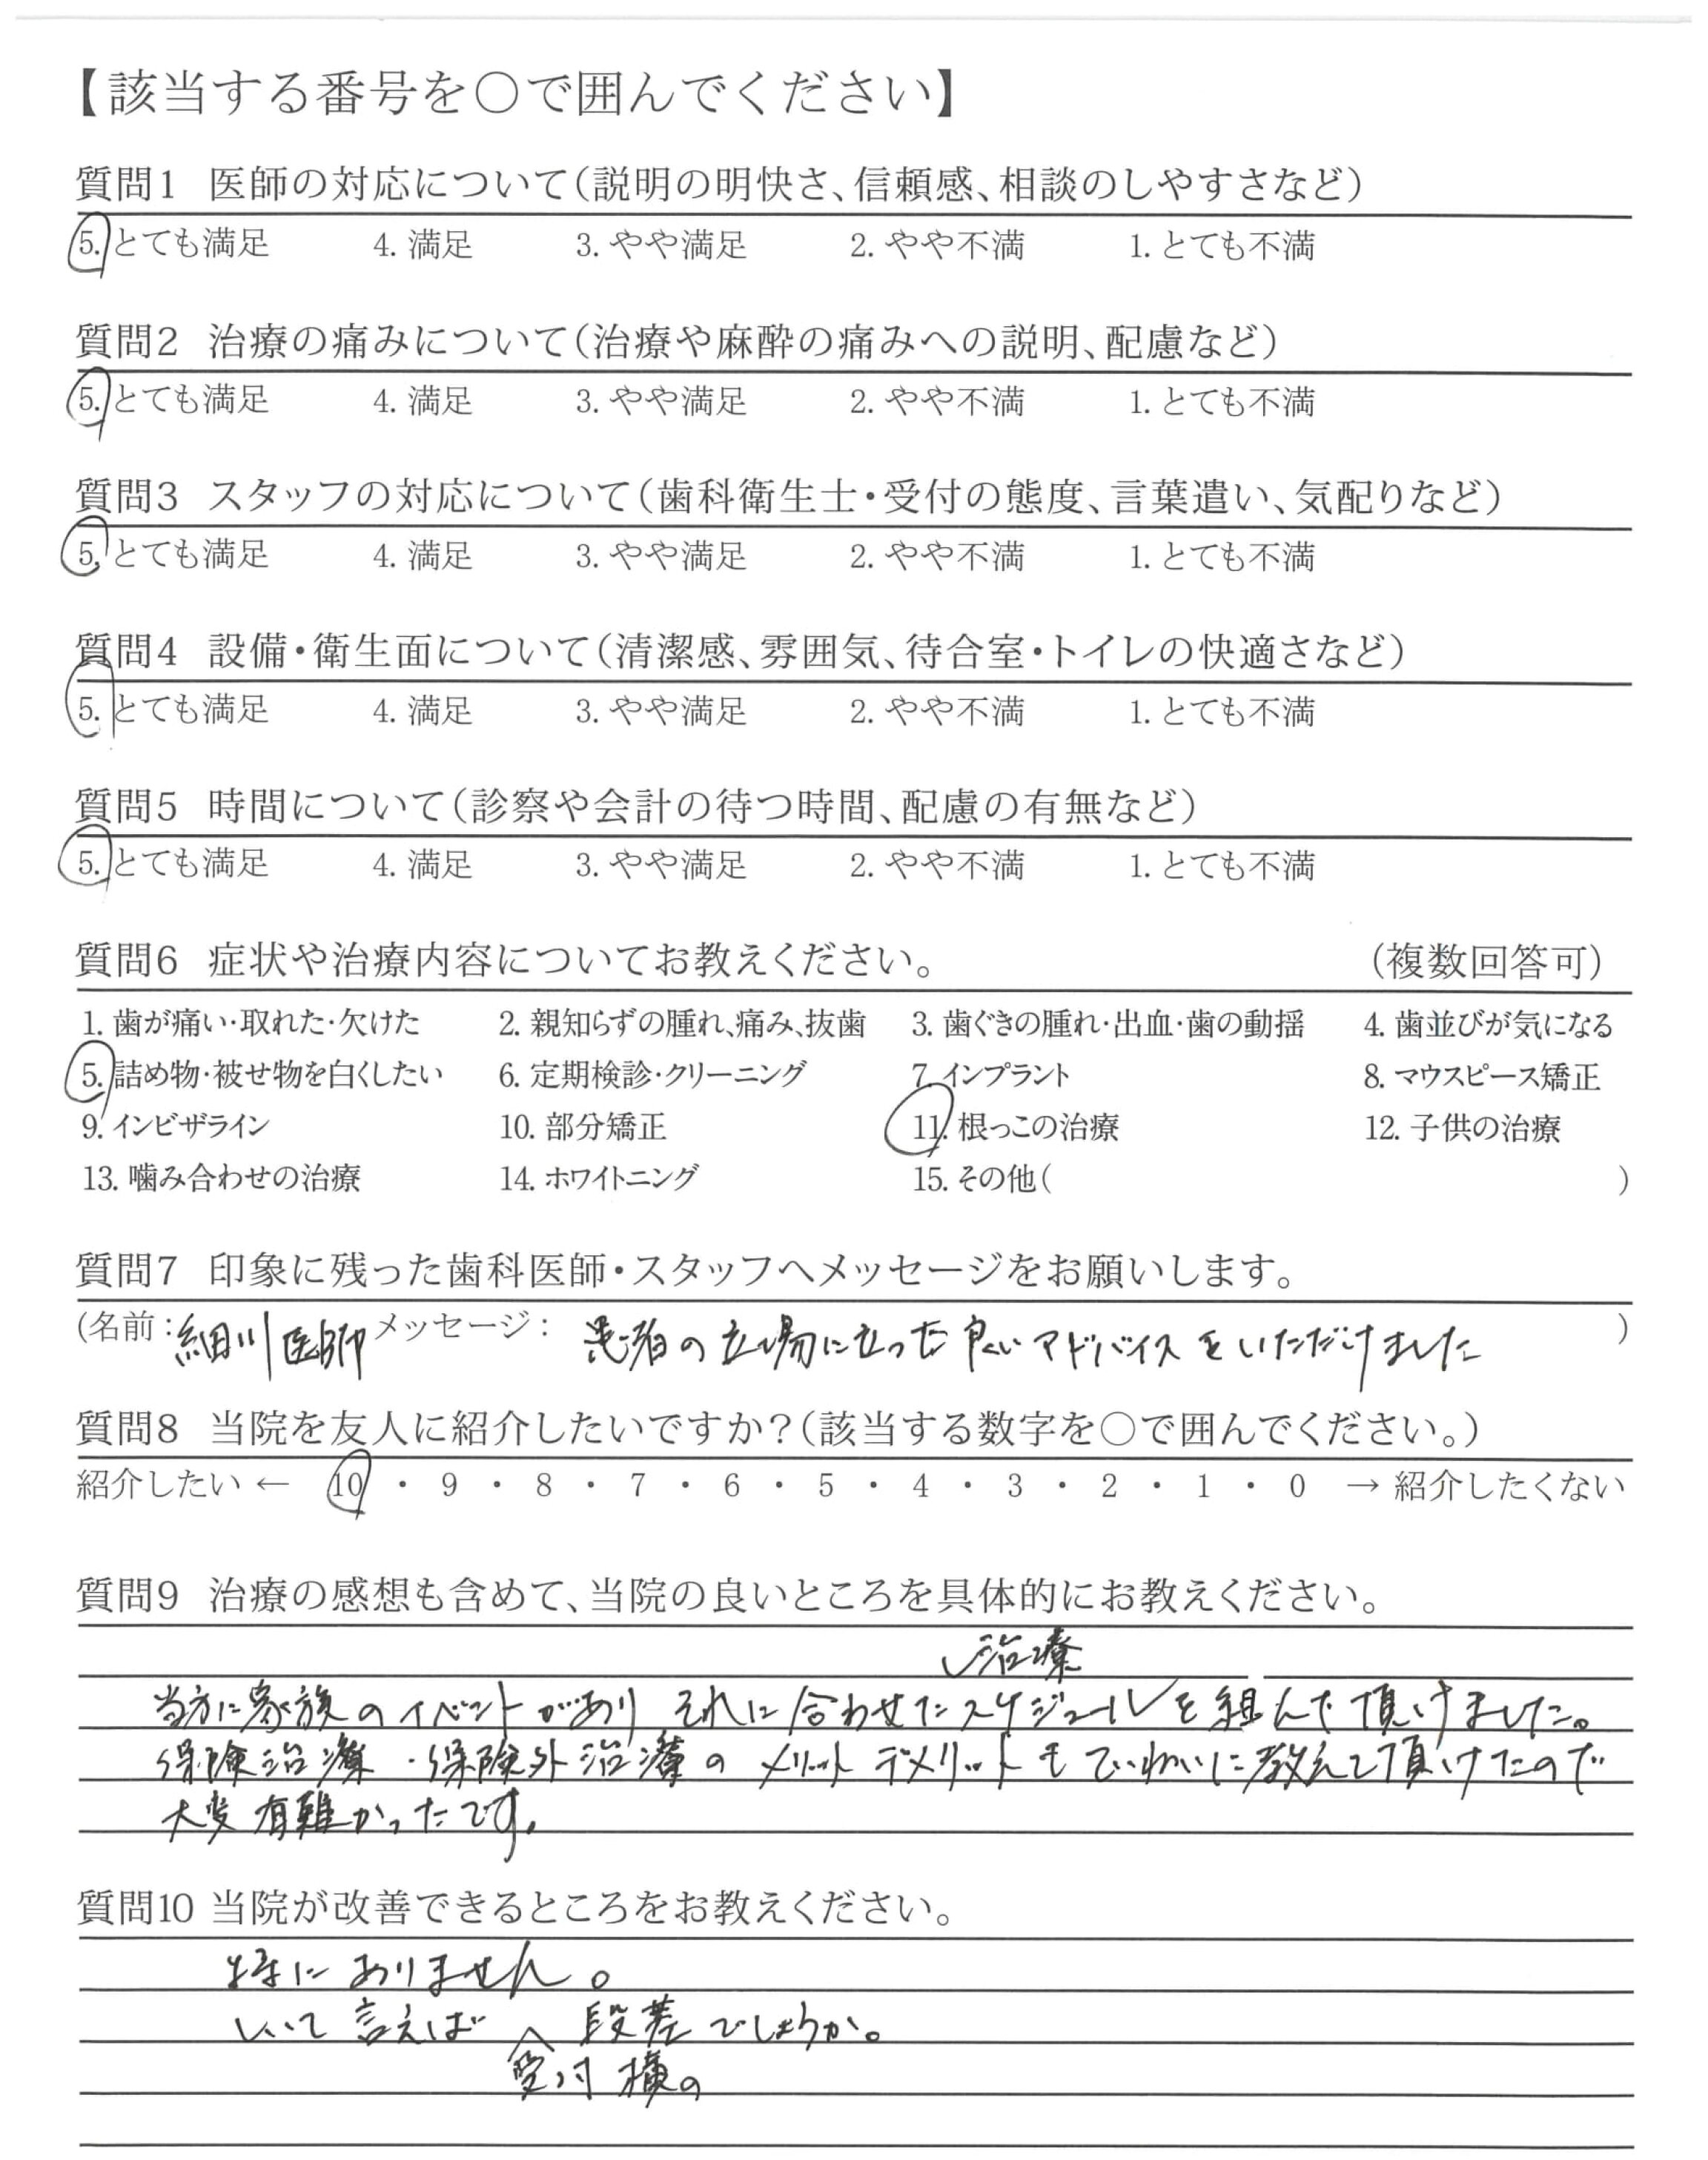 【該当する番号を○で囲んでください】
質問1 医師の対応について(説明の明快さ、信頼感、相談のしやすさなど)
5. とても満足 4. 満足 3. やや満足 2. やや不満 1. とても不満
質問2 治療の痛みについて(治療や麻酔の痛みへの説明、配慮など)
5. とても満足 4. 満足 3. やや満足 2. やや不満 1. とても不満
質問3 スタッフの対応について(歯科衛生士・受付の態度、言葉遣い、気配りなど)
5. とても満足 4. 満足 3. やや満足 2. やや不満 1. とても不満
質問4 設備・衛生面について(清潔感、雰囲気、待合室・トイレの快適さなど)
5. とても満足 4. 満足 3. やや満足 2. やや不満 1. とても不満
質問5 時間について(診察や会計の待つ時間、配慮の有無など)
5. とても満足 4. 満足 3. やや満足 2. やや不満 1. とても不満
質問6 症状や治療内容についてお教えください。 (複数回答可)
1. 歯が痛い・取れた・欠けた 2. 親知らずの腫れ、痛み、抜歯 3. 歯ぐきの腫れ・出血・歯の動揺 4. 歯並びが気になる
5. 詰め物・被せ物を白くしたい 6. 定期検診・クリーニング 7. インプラント 8. マウスピース矯正
9. インビザライン 10. 部分矯正 11. 根っこの治療 12. 子供の治療
13. 噛み合わせの治療 14. ホワイトニング 15. その他( )
質問7 印象に残った歯科医師・スタッフへメッセージをお願いします。
(名前:細川医師 メッセージ: 患者の立場に立った良いアドバイスをいただけました )
質問8 当院を友人に紹介したいですか?(該当する数字を○で囲んでください。)
紹介したい ← 10 ・ 9 ・ 8 ・ 7 ・ 6 ・ 5 ・ 4 ・ 3 ・ 2 ・ 1 ・ 0 → 紹介したくない
質問9 治療の感想も含めて、当院の良いところを具体的にお教えください。
治療
当方に家族のイベントがあり それに合わせたスケジュールを組んで頂けました。
保険治療・保険外治療のメリットデメリットもていねいに教えて頂けたので
大変有難かったです。
質問10 当院が改善できるところをお教えください。
特にありません。
しいて言えば 段差でしょうか。
受付横の